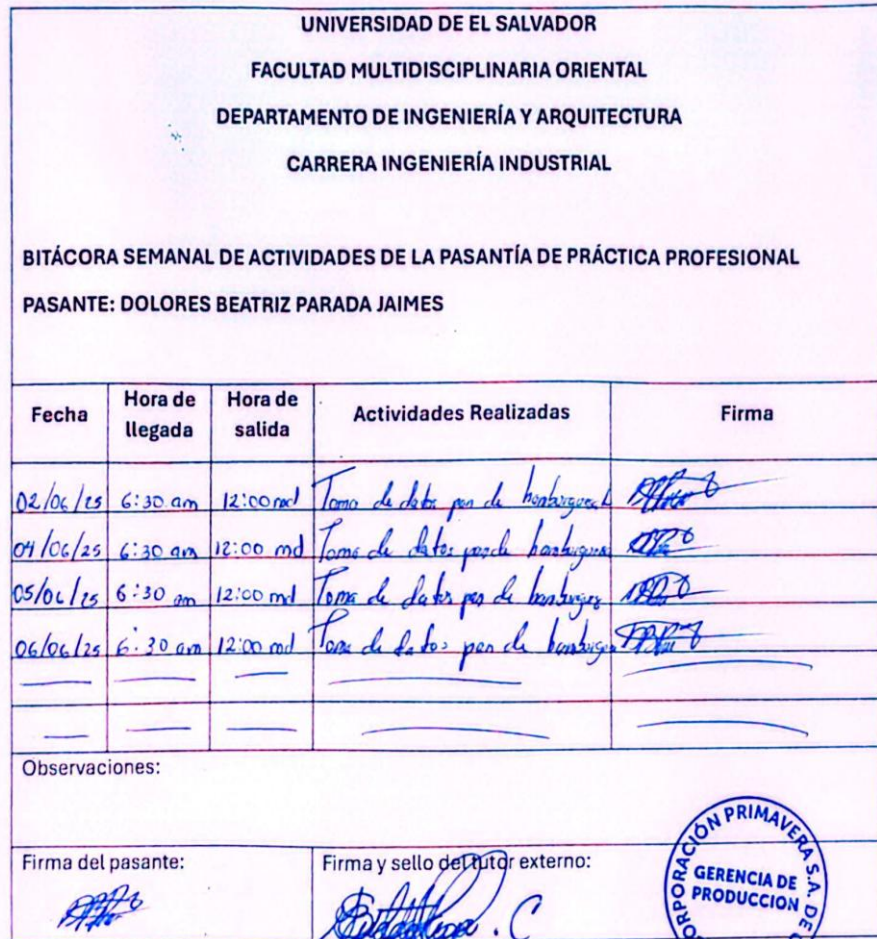 UNIVERSIDAD DE EL SALVADOR
FACULTAD MULTIDISCIPLINARIA ORIENTAL
DEPARTAMENTO DE INGENIERÍA Y ARQUITECTURA
CARRERA INGENIERÍA INDUSTRIAL
BITÁCORA SEMANAL DE ACTIVIDADES DE LA PASANTÍA DE PRÁCTICA PROFESIONAL
PASANTE: DOLORES BEATRIZ PARADA JAIMES
Fecha Hora de llegada Hora de salida Actividades Realizadas Firma
02/06/25 6:30 am 12:00 md Toma de datos pan de hamburguesa
04/06/25 6:30 am 12:00 md Toma de datos pan de hamburguesa
05/06/25 6:30 am 12:00 md Toma de datos pan de
06/06/25 6:30 am 12:00 md Toma de datos pan de
Observaciones:
Firma del pasante: Firma y sello del tutor externo:
CORPORACIÓN PRIMAVERA S.A. DE C
GERENCIA DE
PRODUCCION